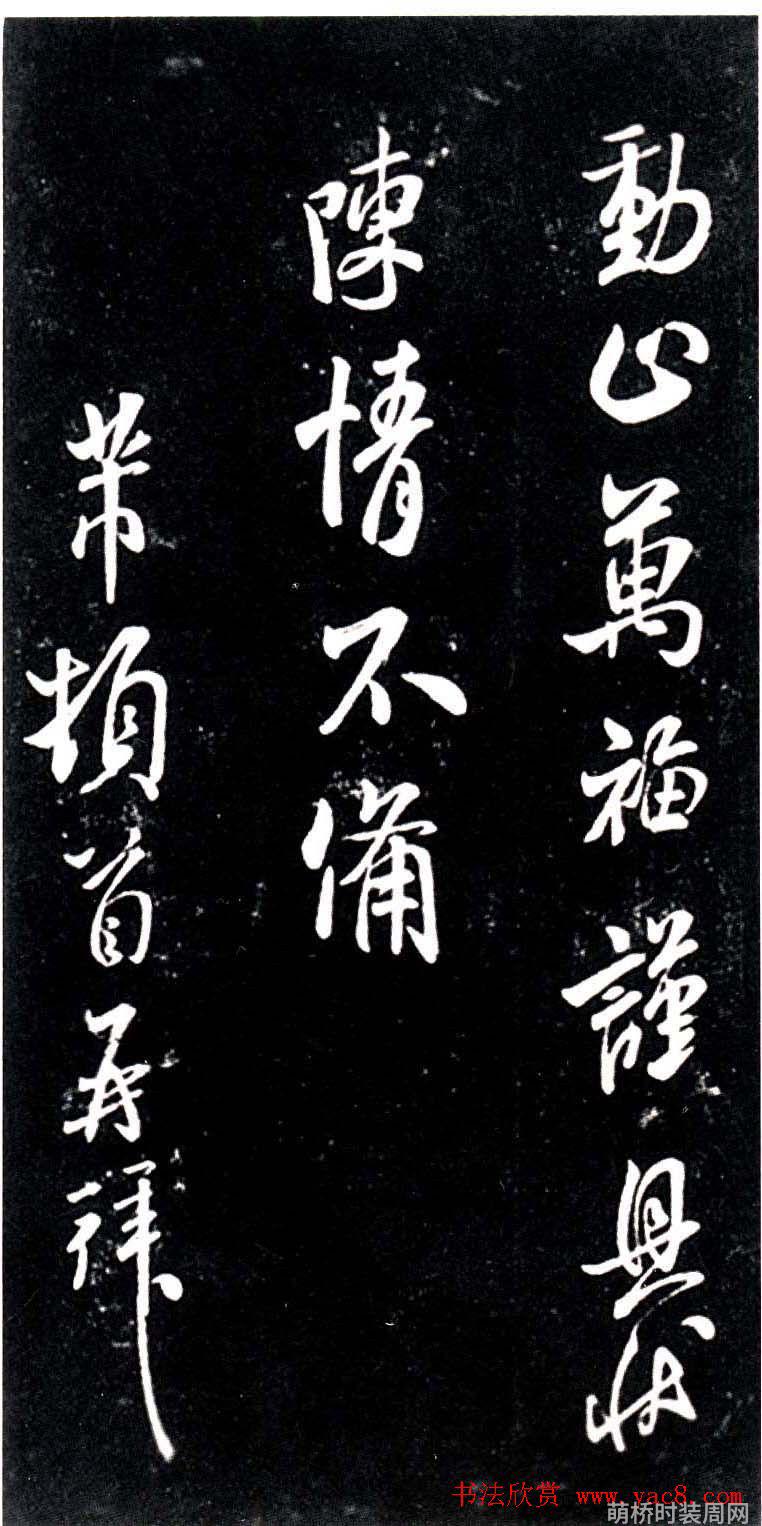 動止萬福謹具狀
陳情不備
芾頓首再拜
书法欣赏 www.yac8.com
萌桥时装周网